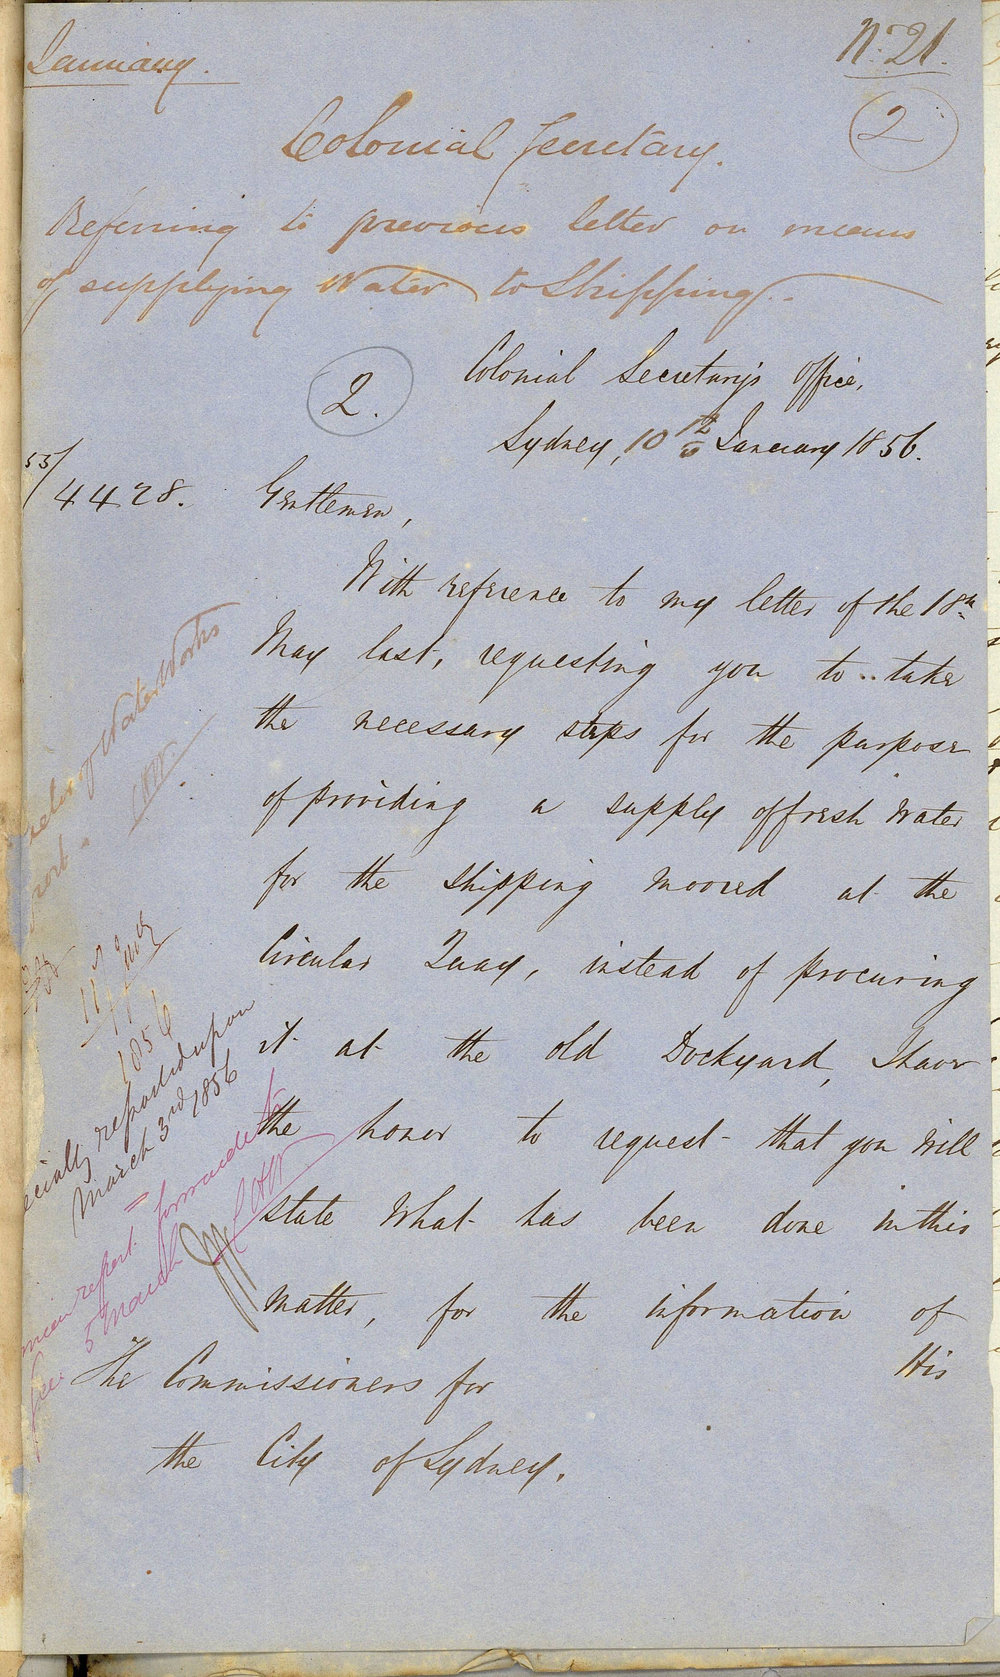 January.
No. 21.
2
Colonial Secretary.
Referring to previous letter on means
of supplying Water to Shipping.
2.
Colonial Secretary's Office,
Sydney, 10th January 1856.
55/4428.
Gentlemen,
With reference to my letter of the 18th
May last, requesting you to take
the necessary steps for the purpose
of providing a supply of fresh Water
for the Shipping Moored at the
Circular Quay, instead of procuring
it at the old Dockyard, I have
the honor to request that you will
state What has been done in this
Matter, for the information of
His
The Commissioners for
the City of Sydney.
of Water Works
11
1856
reported upon
March 3rd 1856
report forwarded to
5 March